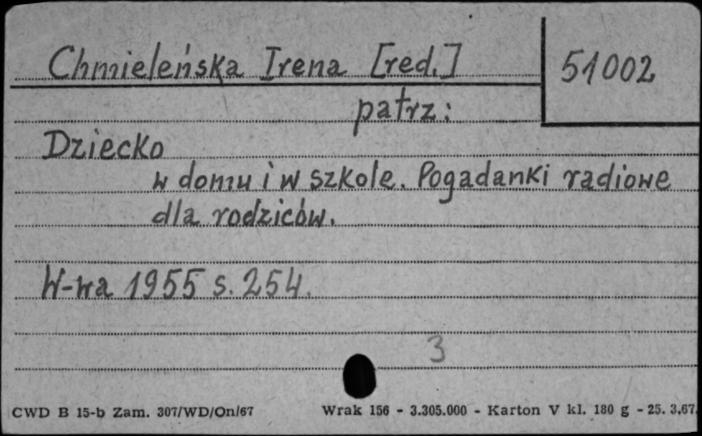 Chmieleńska Irena [red.]
51002
patrz:
Dziecko
w domu i w szkole. Pogadanki radiowe
dla rodziców.
W-wa 1955 s. 254.
3
CWD B 15-b Zam. 307/WD/On/67
Wrak 156 - 3.305.000 - Karton V kl. 180 g - 25. 3.67.